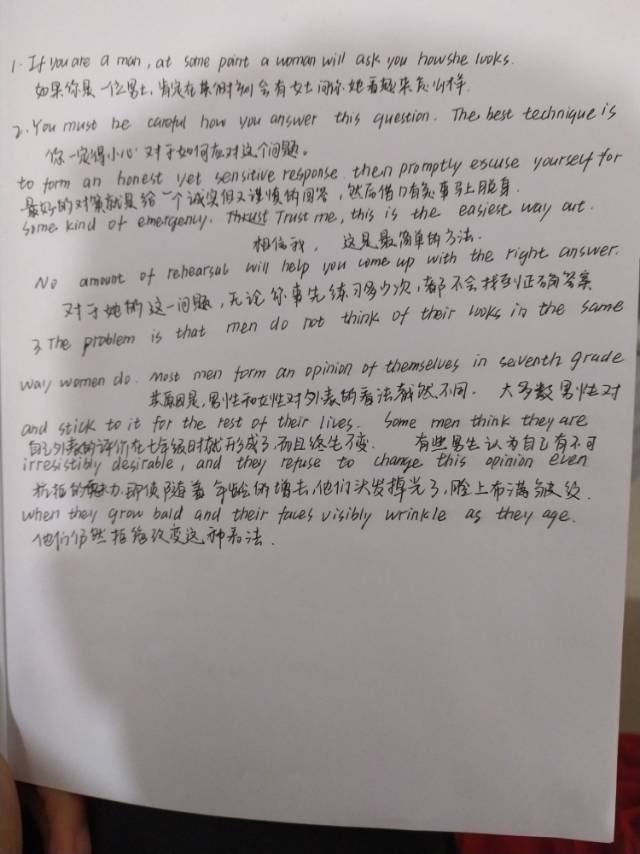 1. If you are a man, at some point a woman will ask you how she looks.
如果你是一位男士,肯定在某个时刻会有女士问你她看起来怎么样.
2. You must be careful how you answer this question. The best technique is
你一定得小心对于如何应对这个问题。
to form an honest yet sensitive response. then promptly escuse yourself for
最好的对策就是给一个诚实但又谨慎的回答,然后借口有急事马上脱身.
some kind of emergency. Thrust Trust me, this is the easiest way out.
相信我, 这是最简单的方法.
No amount of rehearsal will help you come up with the right answer.
对于她的这一问题,无论你事先练习多少次,都不会找到正确答案
3. The problem is that men do not think of their looks in the same
way women do. Most men form an opinion of themselves in seventh grade
其原因是,男性和女性对外表的看法截然不同. 大多数男性对
and stick to it for the rest of their lives. Some men think they are
自己外表的评价在七年级时就形成了,而且终生不变. 有些男生认为自己有不可
irresistibly desirable, and they refuse to change this opinion even
抗拒的魅力.即使随着年龄的增长,他们头发掉光了,脸上布满皱纹.
when they grow bald and their faces visibly wrinkle as they age.
他们仍然拒绝改变这种看法.